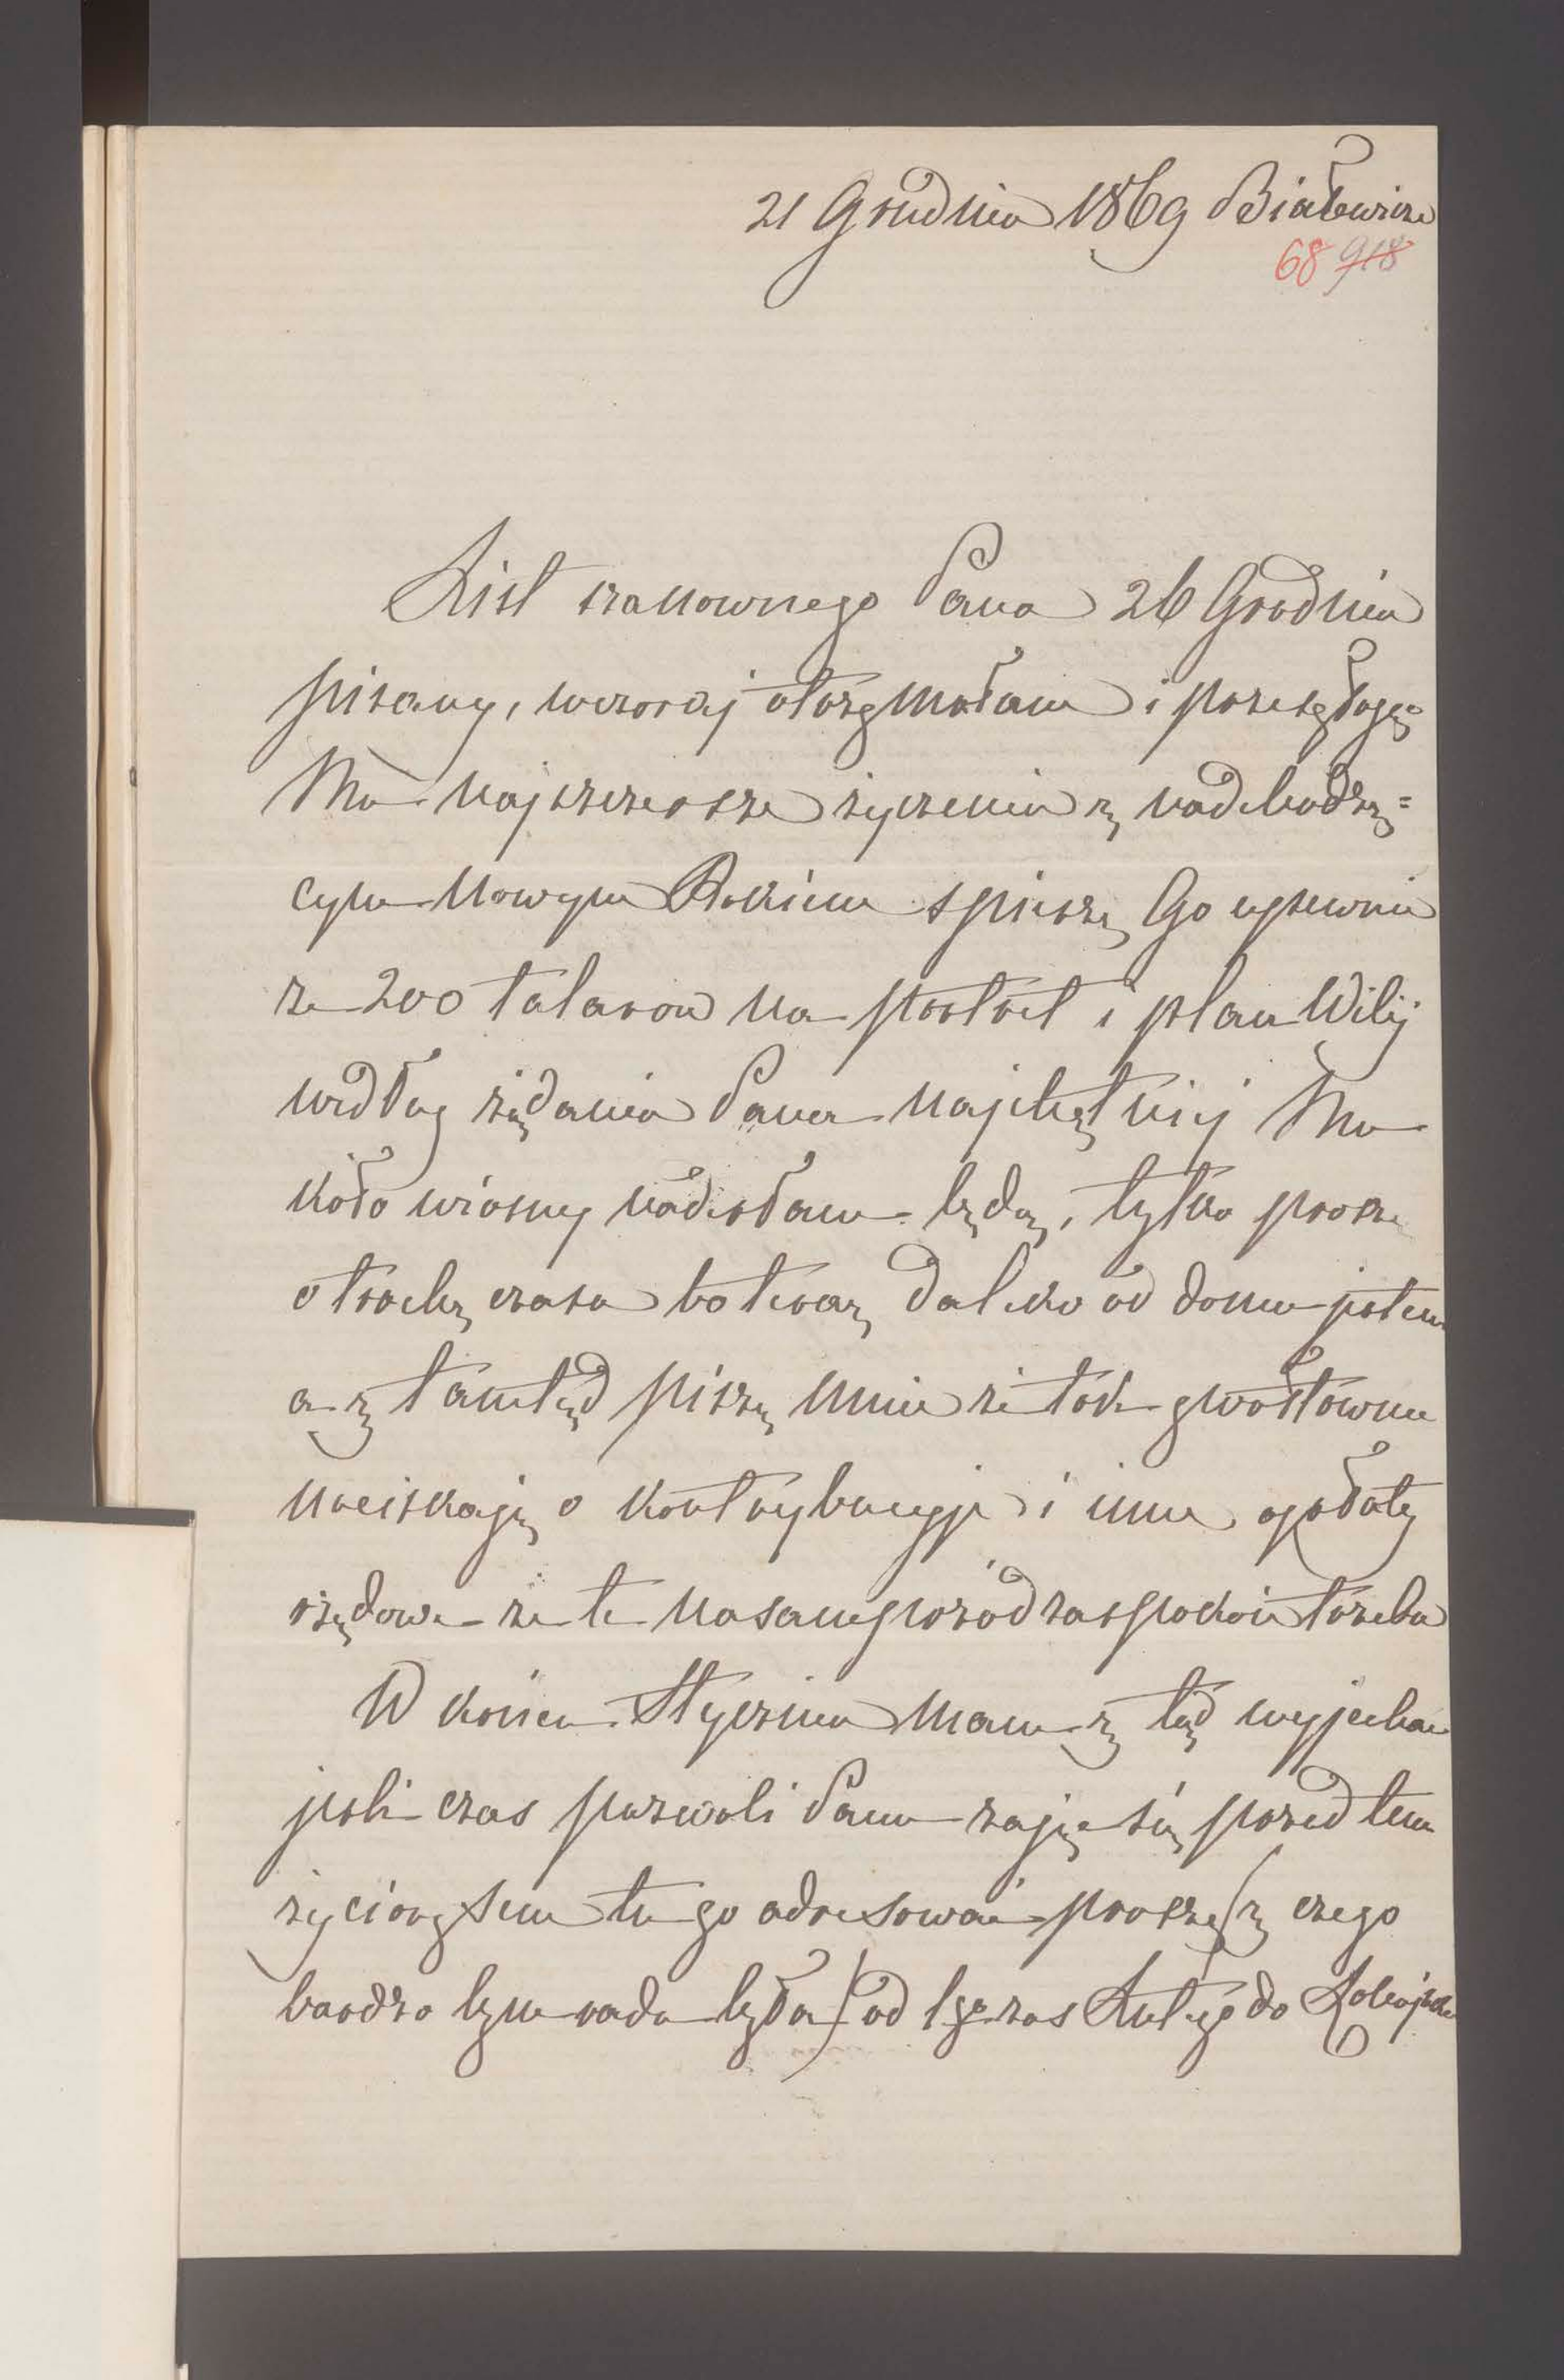 21 Grudnia 1869 Białewicze
68 918
List szanownego Pana 26 Grudnia
pisany, wczoraj otrzymałam i przesyłając
Mu najszczersze życzenia z nadchodzą=
cym Nowym Rokiem spieszę Go upewnić
że 200 talarów na portret i plan Wilij
według żądania Pana najchętniej Mu
koło wiosny nadesłam będę, tylko proszę
o trochę czasu bo teraz daleko od domu jestem
a z tamtąd piszą mnie że tak gwałtowne
naciskają o kontrybucyje i inne opłaty
rządowe że te nasamprzód zaspokoić trzeba
W końcu Stycznia mam z tąd wyjechać
jeśli czas pozwoli Panu zająć się przed tem
życiorysem tu go adresować proszę (z czego
bardzo bym rada była) od 1go zas Lutego do